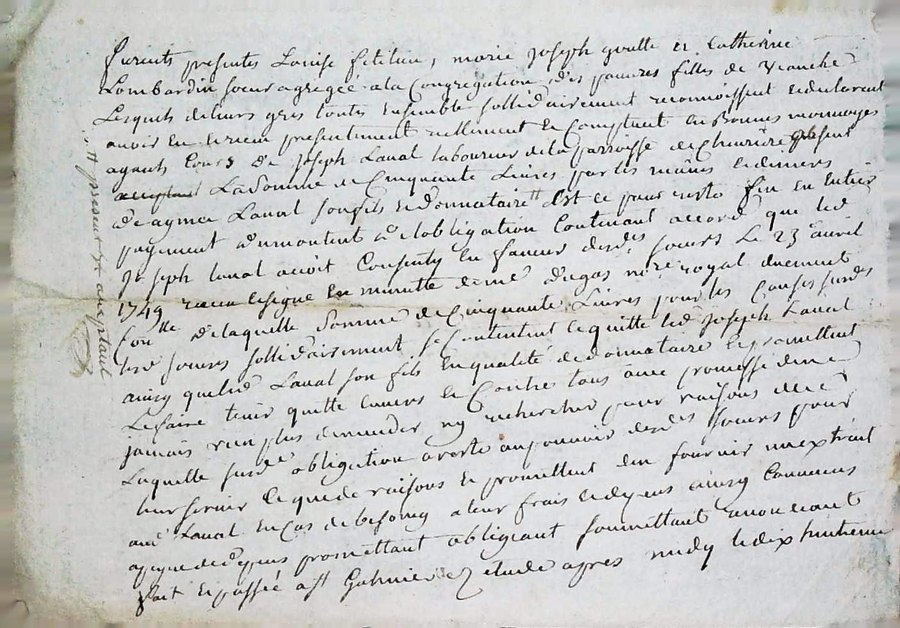 furents presentes Louise fetilieu, marie Joseph goutte et Catherine
Lombardin soeur agregée a la Congregation des pauvres filles de
Lesquels de leurs gres toutes ensemble sollidairement reconnoissent et declarent
avoir eu et receu presentiment reellement et Comptent en Bonnes monnoyes
ayants Cours de Joseph Laval laboureur de la parroisse de present
acceptant La Somme de Cinquante Livres par les mains et deniers
d'aymar Laval son fils et donnataire est ce pour reste fin et Entier
payement du montent de l'obligation Contenant accord que led
Joseph Laval avoit Consenty en faveur desdes soeurs Le 23e avril
1749 receu et signe En minutte de me Dugas nore royal duement
Conlle de laquelle Somme de Cinquante Livres pour les Causes susdes
lesd soeurs sollidairement se Contentent et quitte led Joseph Laval
ainsy que led Laval son fils En qualité de donnataire et promettent
Le faire tenir quitte envers et Contre tous avec promesse de ne
jamais rien plus demander ny rechercher pour raisons de ce
Laquelle susde obligation a resté au pouvoir desdes soeurs pour
leur servir ce que de raisons et promettent d'en fournir un extrait
aud Laval En cas de besoing a leur frais et depens ainsy Convenus
a peyne de depens promettant obligeant soumettant renonceant
fait et passée a St Galmier Ez etude apres midy le dix huitieme
present et acceptant